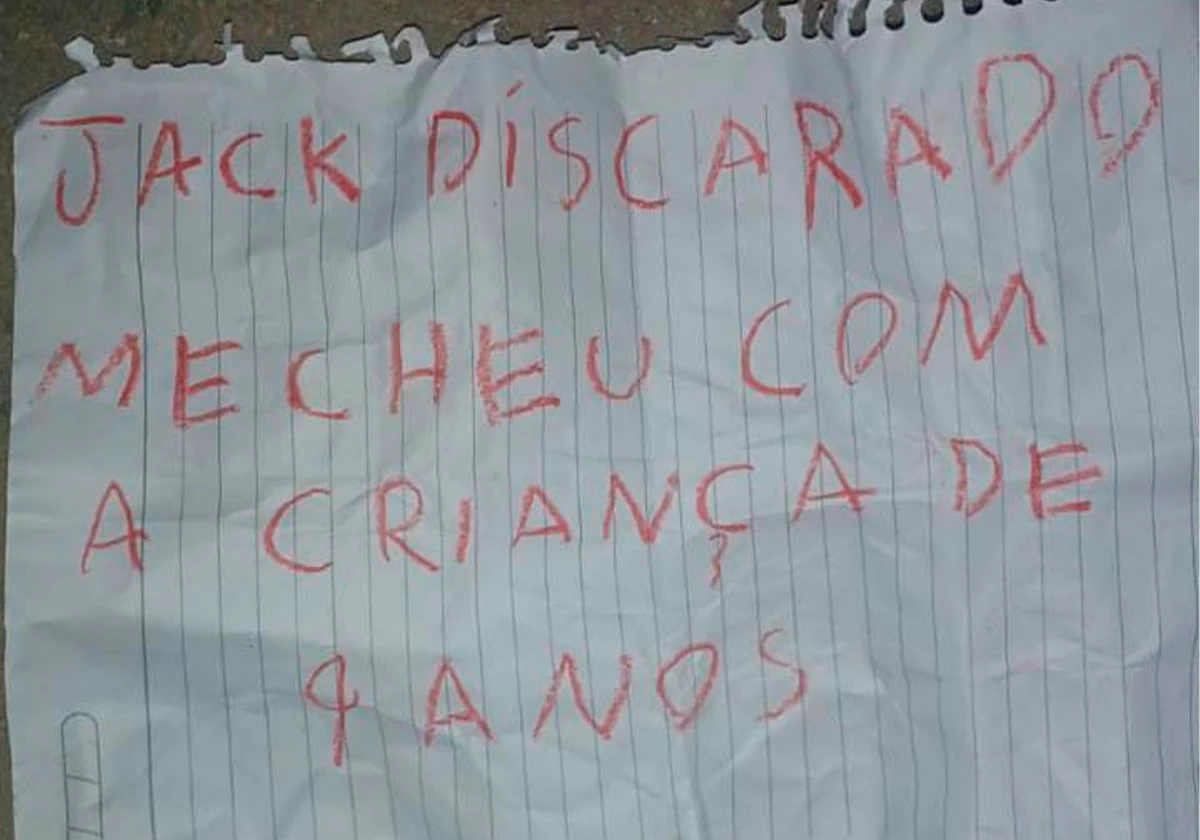 JACK DÍSCARADO
MECHEU COM
A CRIANÇA DE
9 ANOS